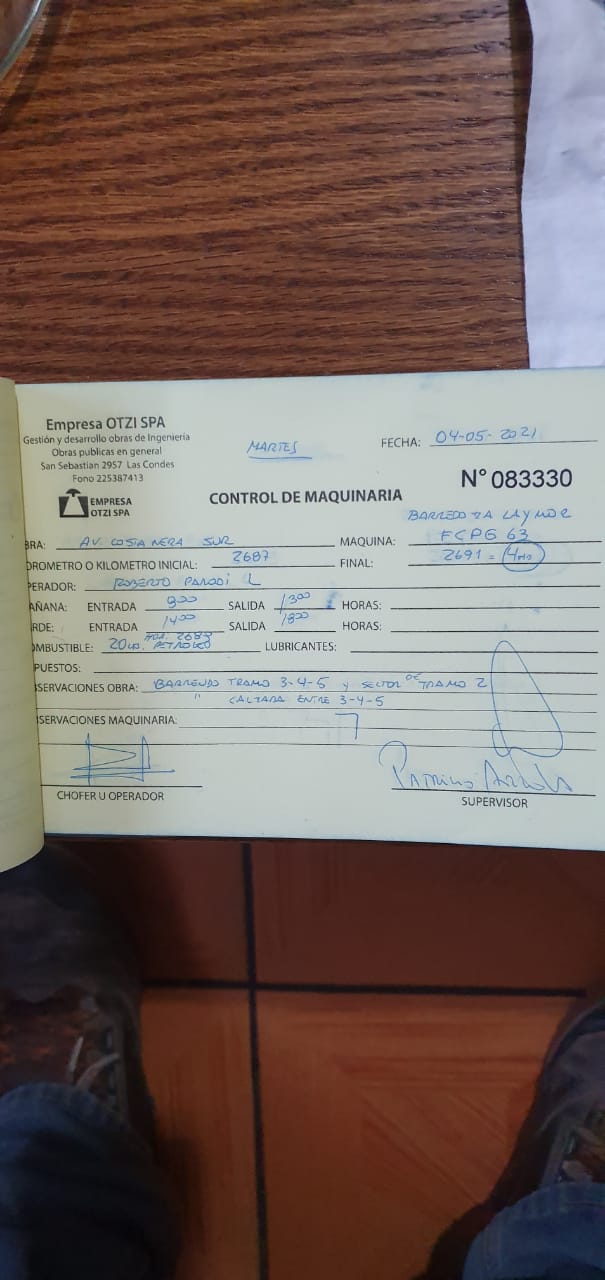 Empresa OTZI SPA
Gestión y desarrollo obras de Ingeniería
Obras publicas en general
San Sebastian 2957 Las Condes
Fono 225387413
EMPRESA
OTZI SPA
MARTES
FECHA: 04-05-2021
N° 083330
CONTROL DE MAQUINARIA
BARREDORA LAYMOR
BRA: AV. COSTANERA SUR MAQUINA: FCPG 63
OROMETRO O KILOMETRO INICIAL: 2687 FINAL: 2691 = 4 HRS
PERADOR: ROBERTO PARODI L
AÑANA: ENTRADA 800 SALIDA 1300 HORAS:
RDE: ENTRADA 1400 SALIDA 1800 HORAS:
OMBUSTIBLE: 20 PETROLEO 2687 LUBRICANTES:
PUESTOS:
SERVACIONES OBRA: BARRENDO TRAMO 3-4-5 y SECTOR DE TRAMO 2
" CALZADA ENTRE 3-4-5
SERVACIONES MAQUINARIA:
CHOFER U OPERADOR
SUPERVISOR